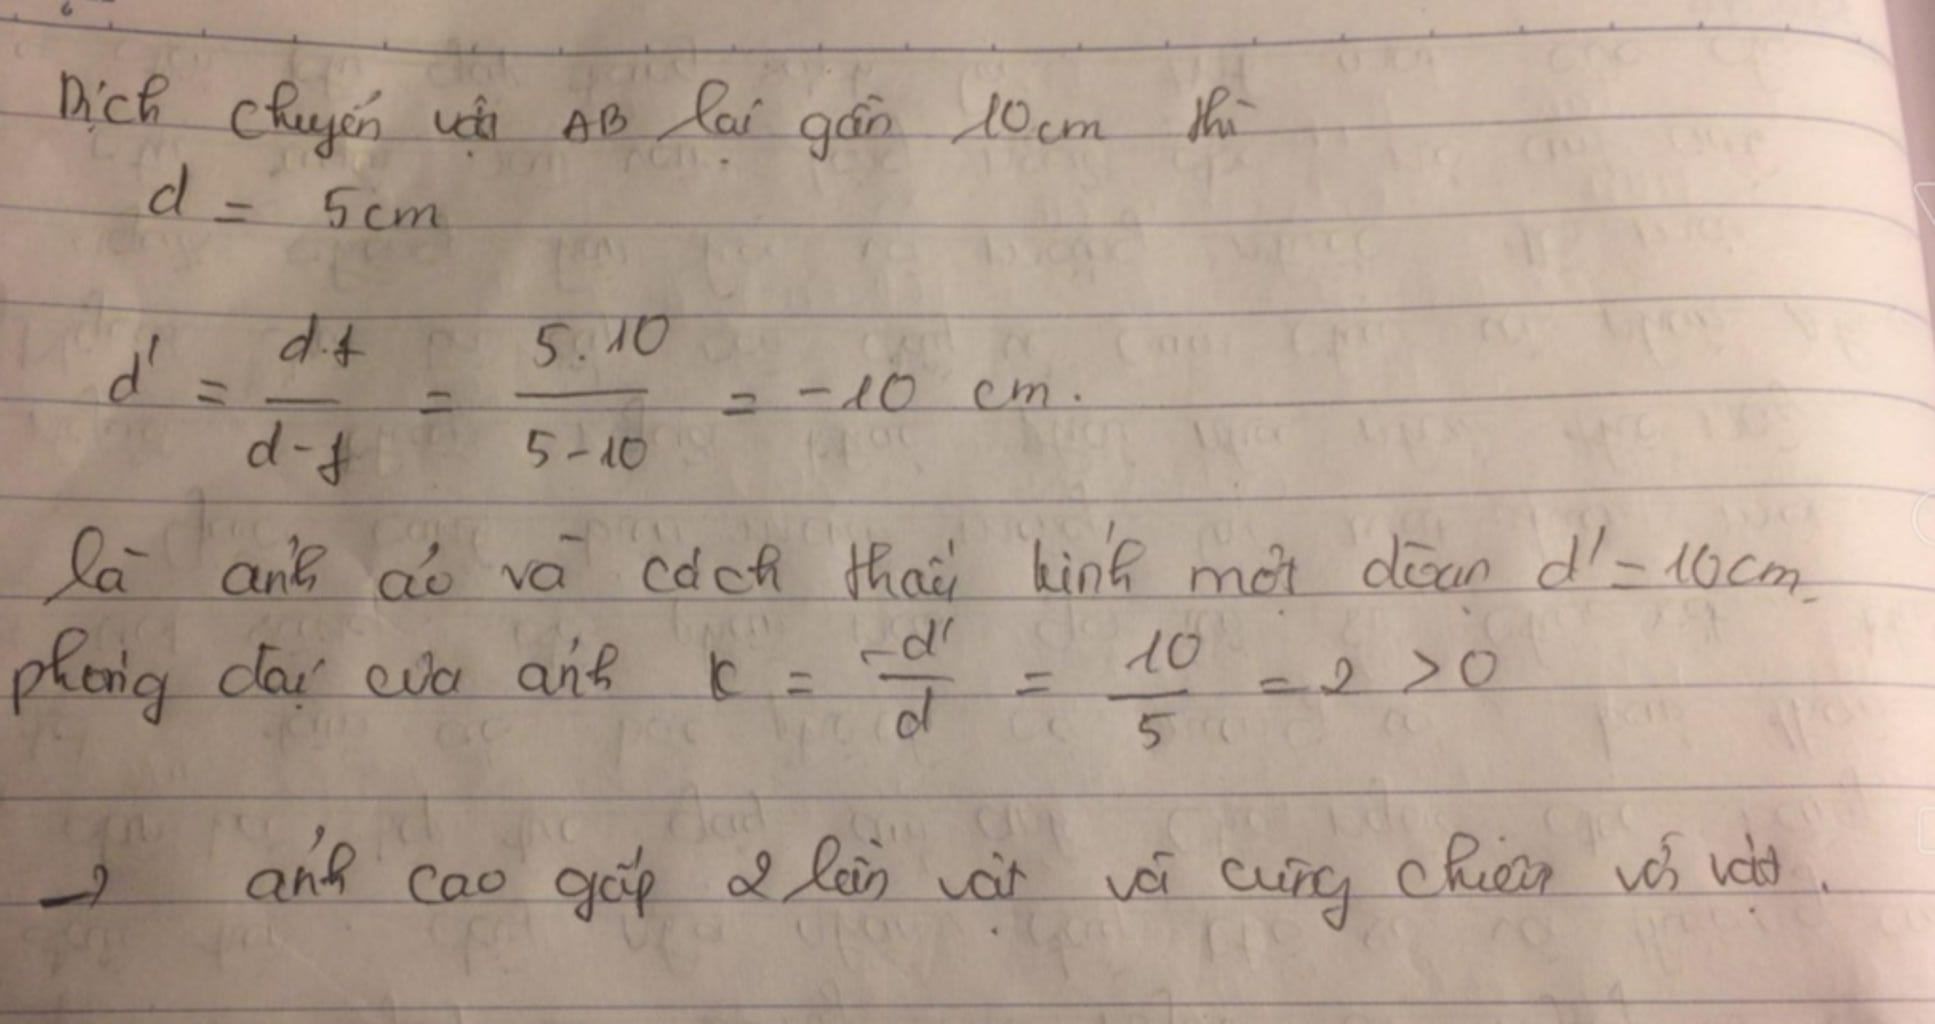 Dịch chuyển vật AB lại gần 10cm thì
d = 5cm
d' = d.f / d-f = 5.10 / 5-10 = -10 cm.
là ảnh ảo và cách thấu kính một đoạn d' = 10cm.
phóng đại của ảnh k = -d' / d = 10 / 5 = 2 > 0
→ ảnh cao gấp 2 lần vật và cùng chiều với vật.